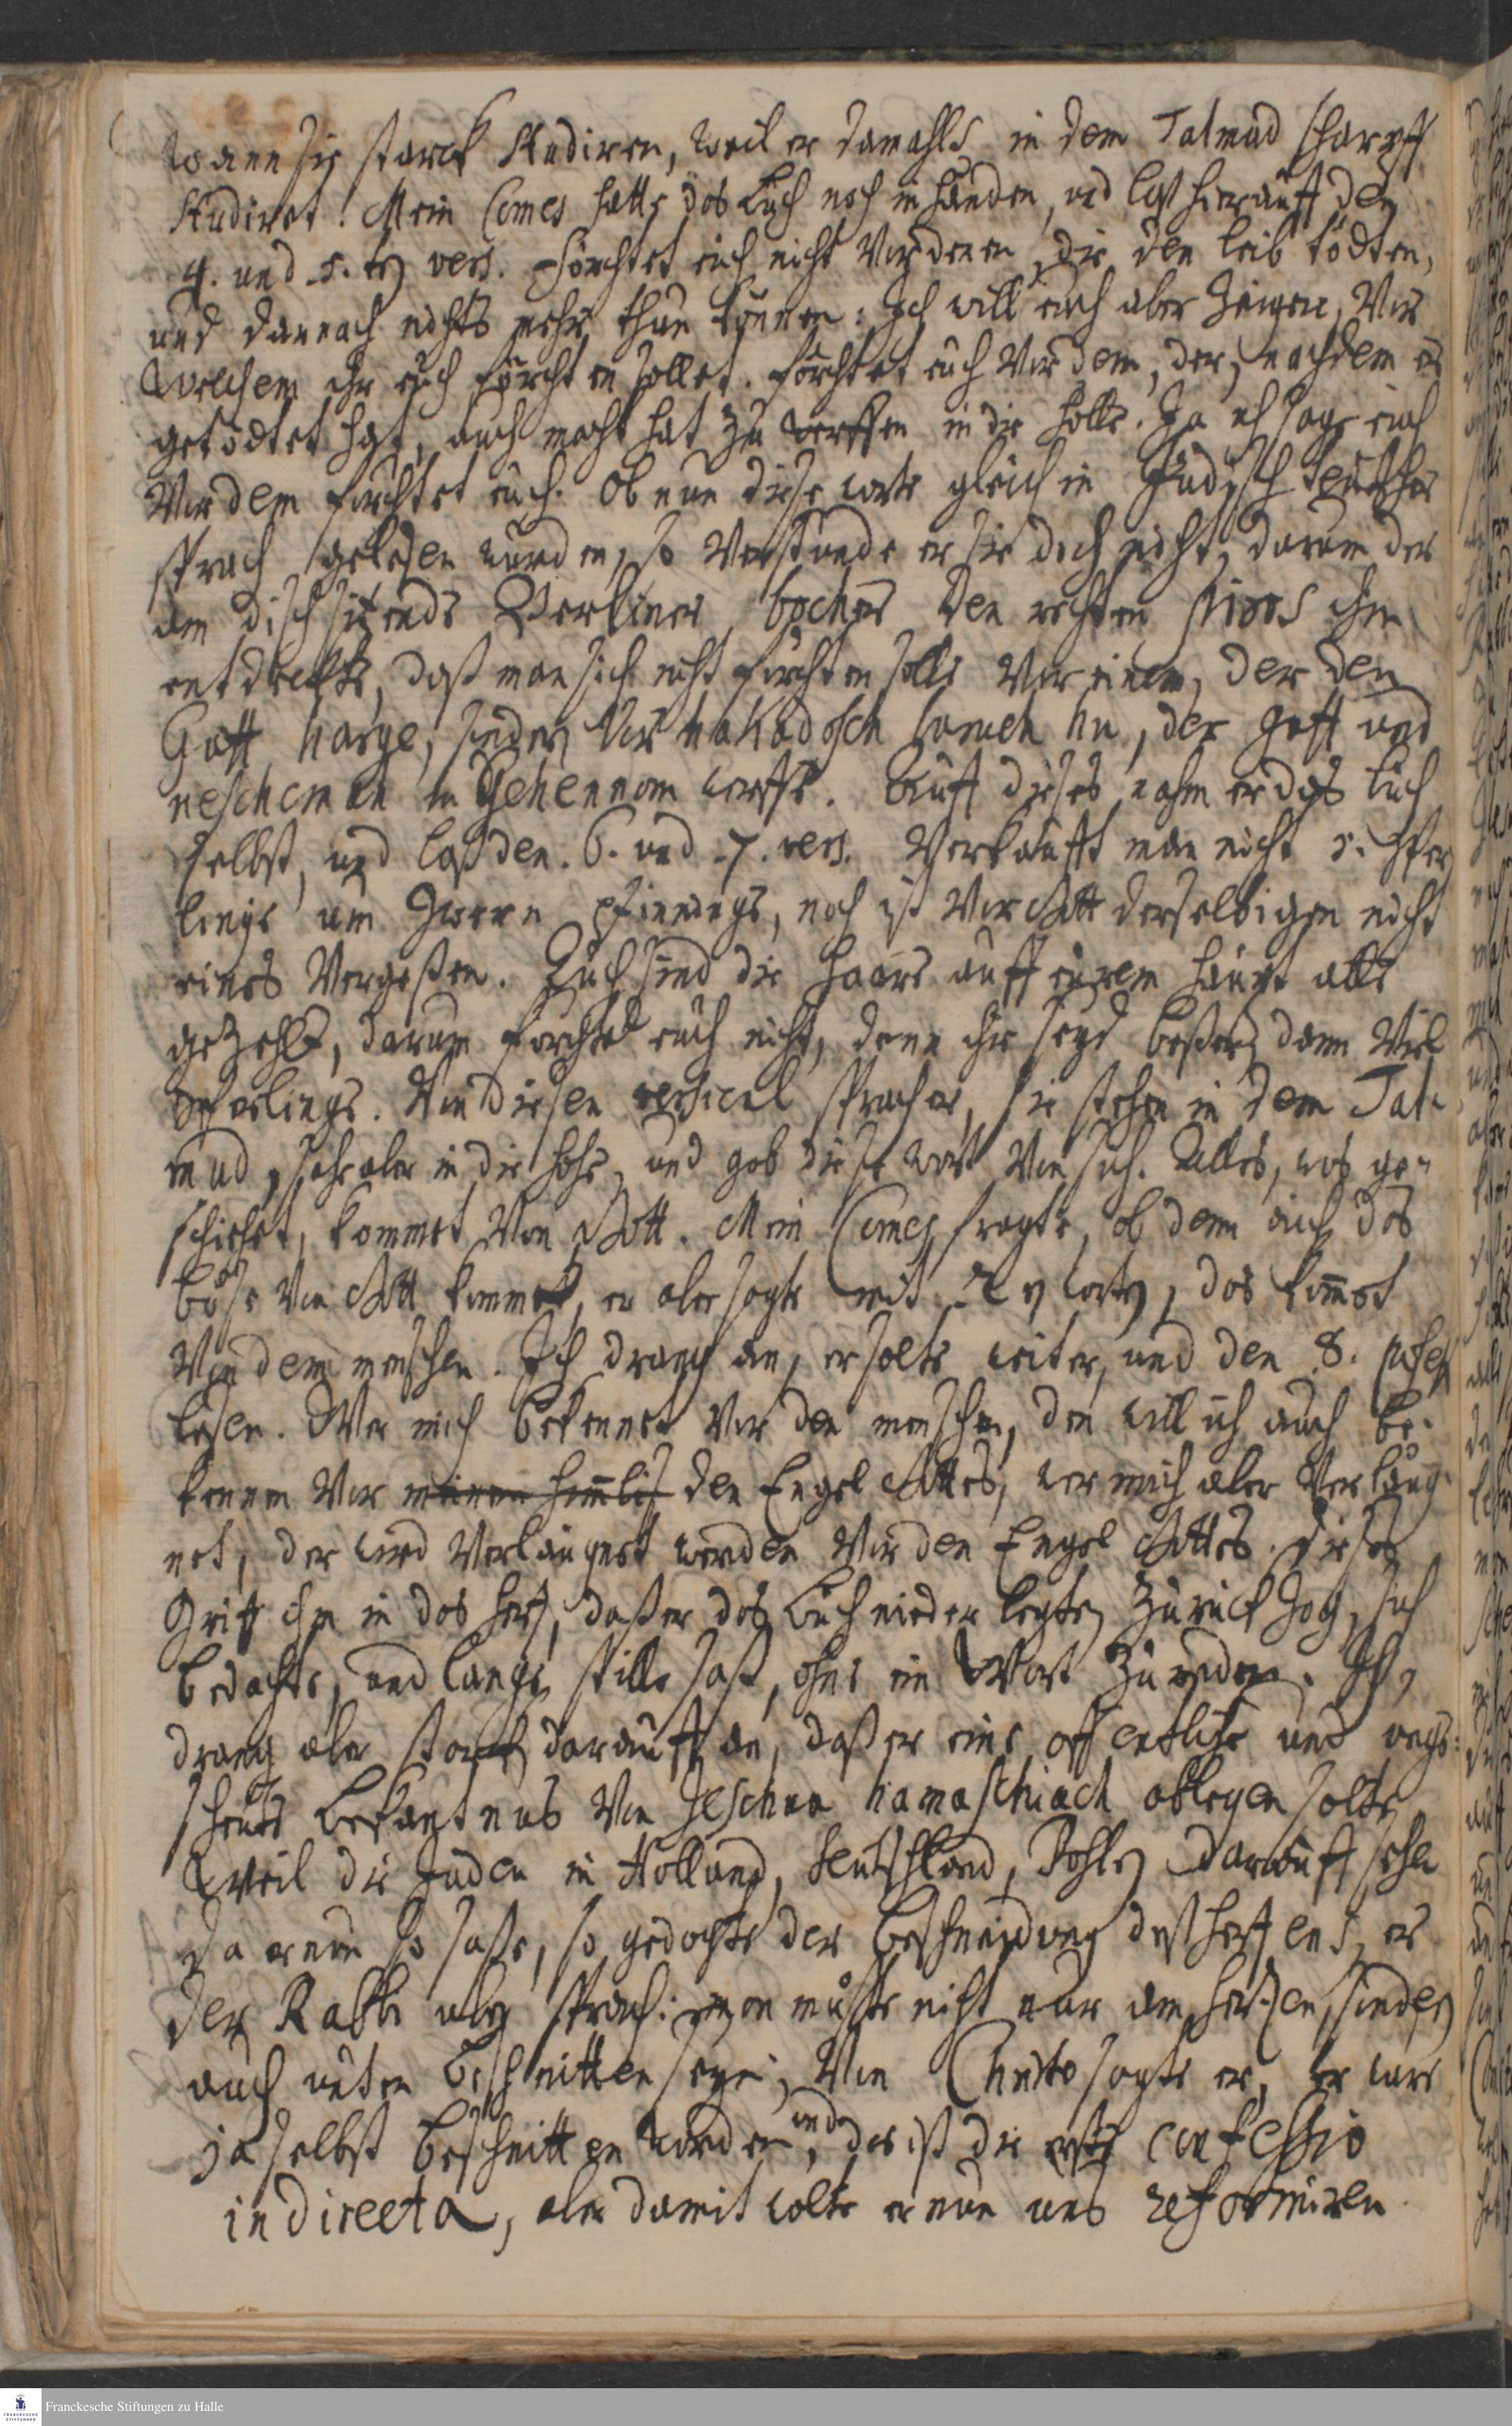 wann sie starck studiren, weil er damahls in dem Talmud scharff
studiret. Mein Comes hatte das buch noch in händen, und last hierauff den
4. und 5.ten vers. Förchtet euch nicht vor denen, die den leib tödten,
und darnach nichts mehr thun können: Ich will euch aber zeigen, vor
welchem ihr euch förchten sollet. förchtet euch vor dem, der, nachdem er
getödtet hat, auch macht hat zu werffen in die hölle. Ja ich sage euch
vor dem förchtet euch. Ob nun diese worte gleich in Jüdisch teutscher
sprach gelesen wurden, so verstunde er sie doch nicht, darum der
am disch sitzende Berliner bocher den rechten ihm
entdeckte, daß man sich nicht förchten solle vor einem, der den
Goff harge, sondern vor hakadosch baruch hu, der goff und
neschomah in Gehennom werffe. Auff dieses nahm er das buch
selbst, und laß den. 6. und 7. vers. Verkaufft man nicht 5. Sper
linge um zween pfennige, noch ist vor Gott derselbigen nicht
eines vergeßen. Auch sind die haare auff eurem haupt alle
gezehlt, darum förchtet euch nicht, denn ihr seyd beßer dann viel
Sperlinge. Von diesen versicul sprach er, sie stehen in dem Tal-
mud, sahe aber in die höhe, und gab diese wort von sich. Alles, was ge-
schiehet, kommet von Gott. Mein Comes fragte, ob denn auch das
böse von Gott kommet, er aber sagte mit worten, das kommet
von dem menschen. Ich drang an, er solte weiter, und den 8.
lesen. Wer mich bekennet vor den menschen, den will ich auch be-
kennen vor meinen himlis den Engel Gottes, wer mich aber verläug-
net, der wird verläugnet werden vor den Engel Gottes. dieses
Griff ihm in das hertz, daß er das buch nieder legte, zurück zog, sich
bedachte, und lange stille saß, ohne ein Wort zu reden. Ich
drang aber starck darauff an, daß er eine offentliche und
bekantnus von Jeschua hamaschiach ablegen solte,
weil die Juden in Holland, teutschland, Pohlen darauff sehen
Da er nun so saße, so gedachte der beschneidung deß hertzens, er
der Rabbi aber sprach: man müste nicht nur am hertzen, sondern
auch unten beschnitten seyn; Von Christo sagte er, er ware
ja selbst beschnitten worden, und das ist die erste confessio
indirecta, aber damit wolte er nun uns reformiren
Franckesche Stiftungen zu Halle